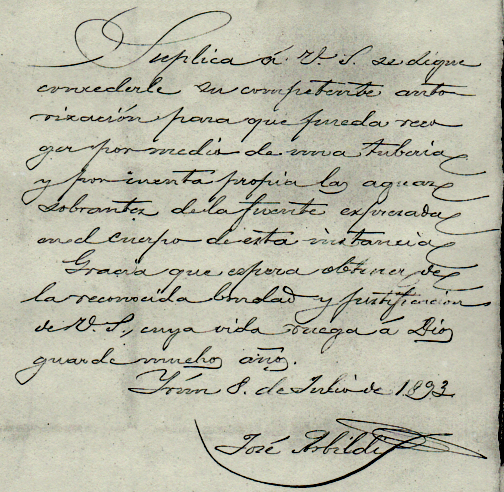 Suplica á V. S. se digne
concederle su competente auto
rización para que pueda reco
ger por medio de una tuberia
y por cuenta propia las aguas
sobrantes de la fuente expresada
en el cuerpo de esta instancia
Gracia que espera obtener de
la reconocida bondad y justificacion
de V. S., cuya vida ruega á Dios
guarde muchos años.
Irún 8. de Julio de 1893
José Arbildi